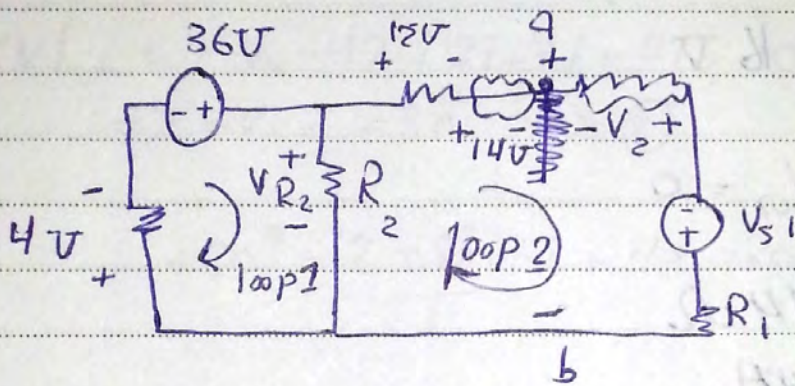 36V
12V
a
+ -
+
- +
+ 14V -
- V2 +
+
VR2
-
R2
-
4V
+
loop1
loop2
-
+
Vs1
R1
-
b